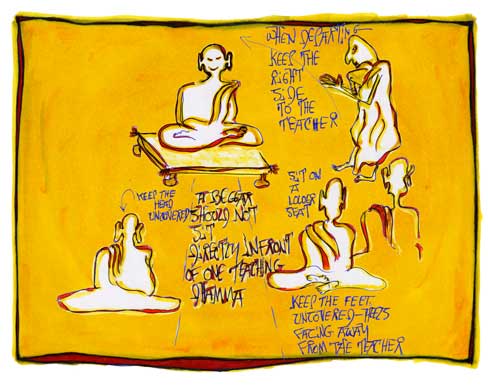 WHEN DEPARTING
KEEP THE
RIGHT
SIDE
TO THE
TEACHER
KEEP THE
HEAD
UNCOVERED
A BEGGAR
SHOULD NOT
SIT
DIRECTLY IN FRONT
OF ONE TEACHING
DHAMMA
SIT ON
A
LOWER
SEAT
KEEP THE FEET
UNCOVERED – HEELS
FACING AWAY
FROM THE TEACHER